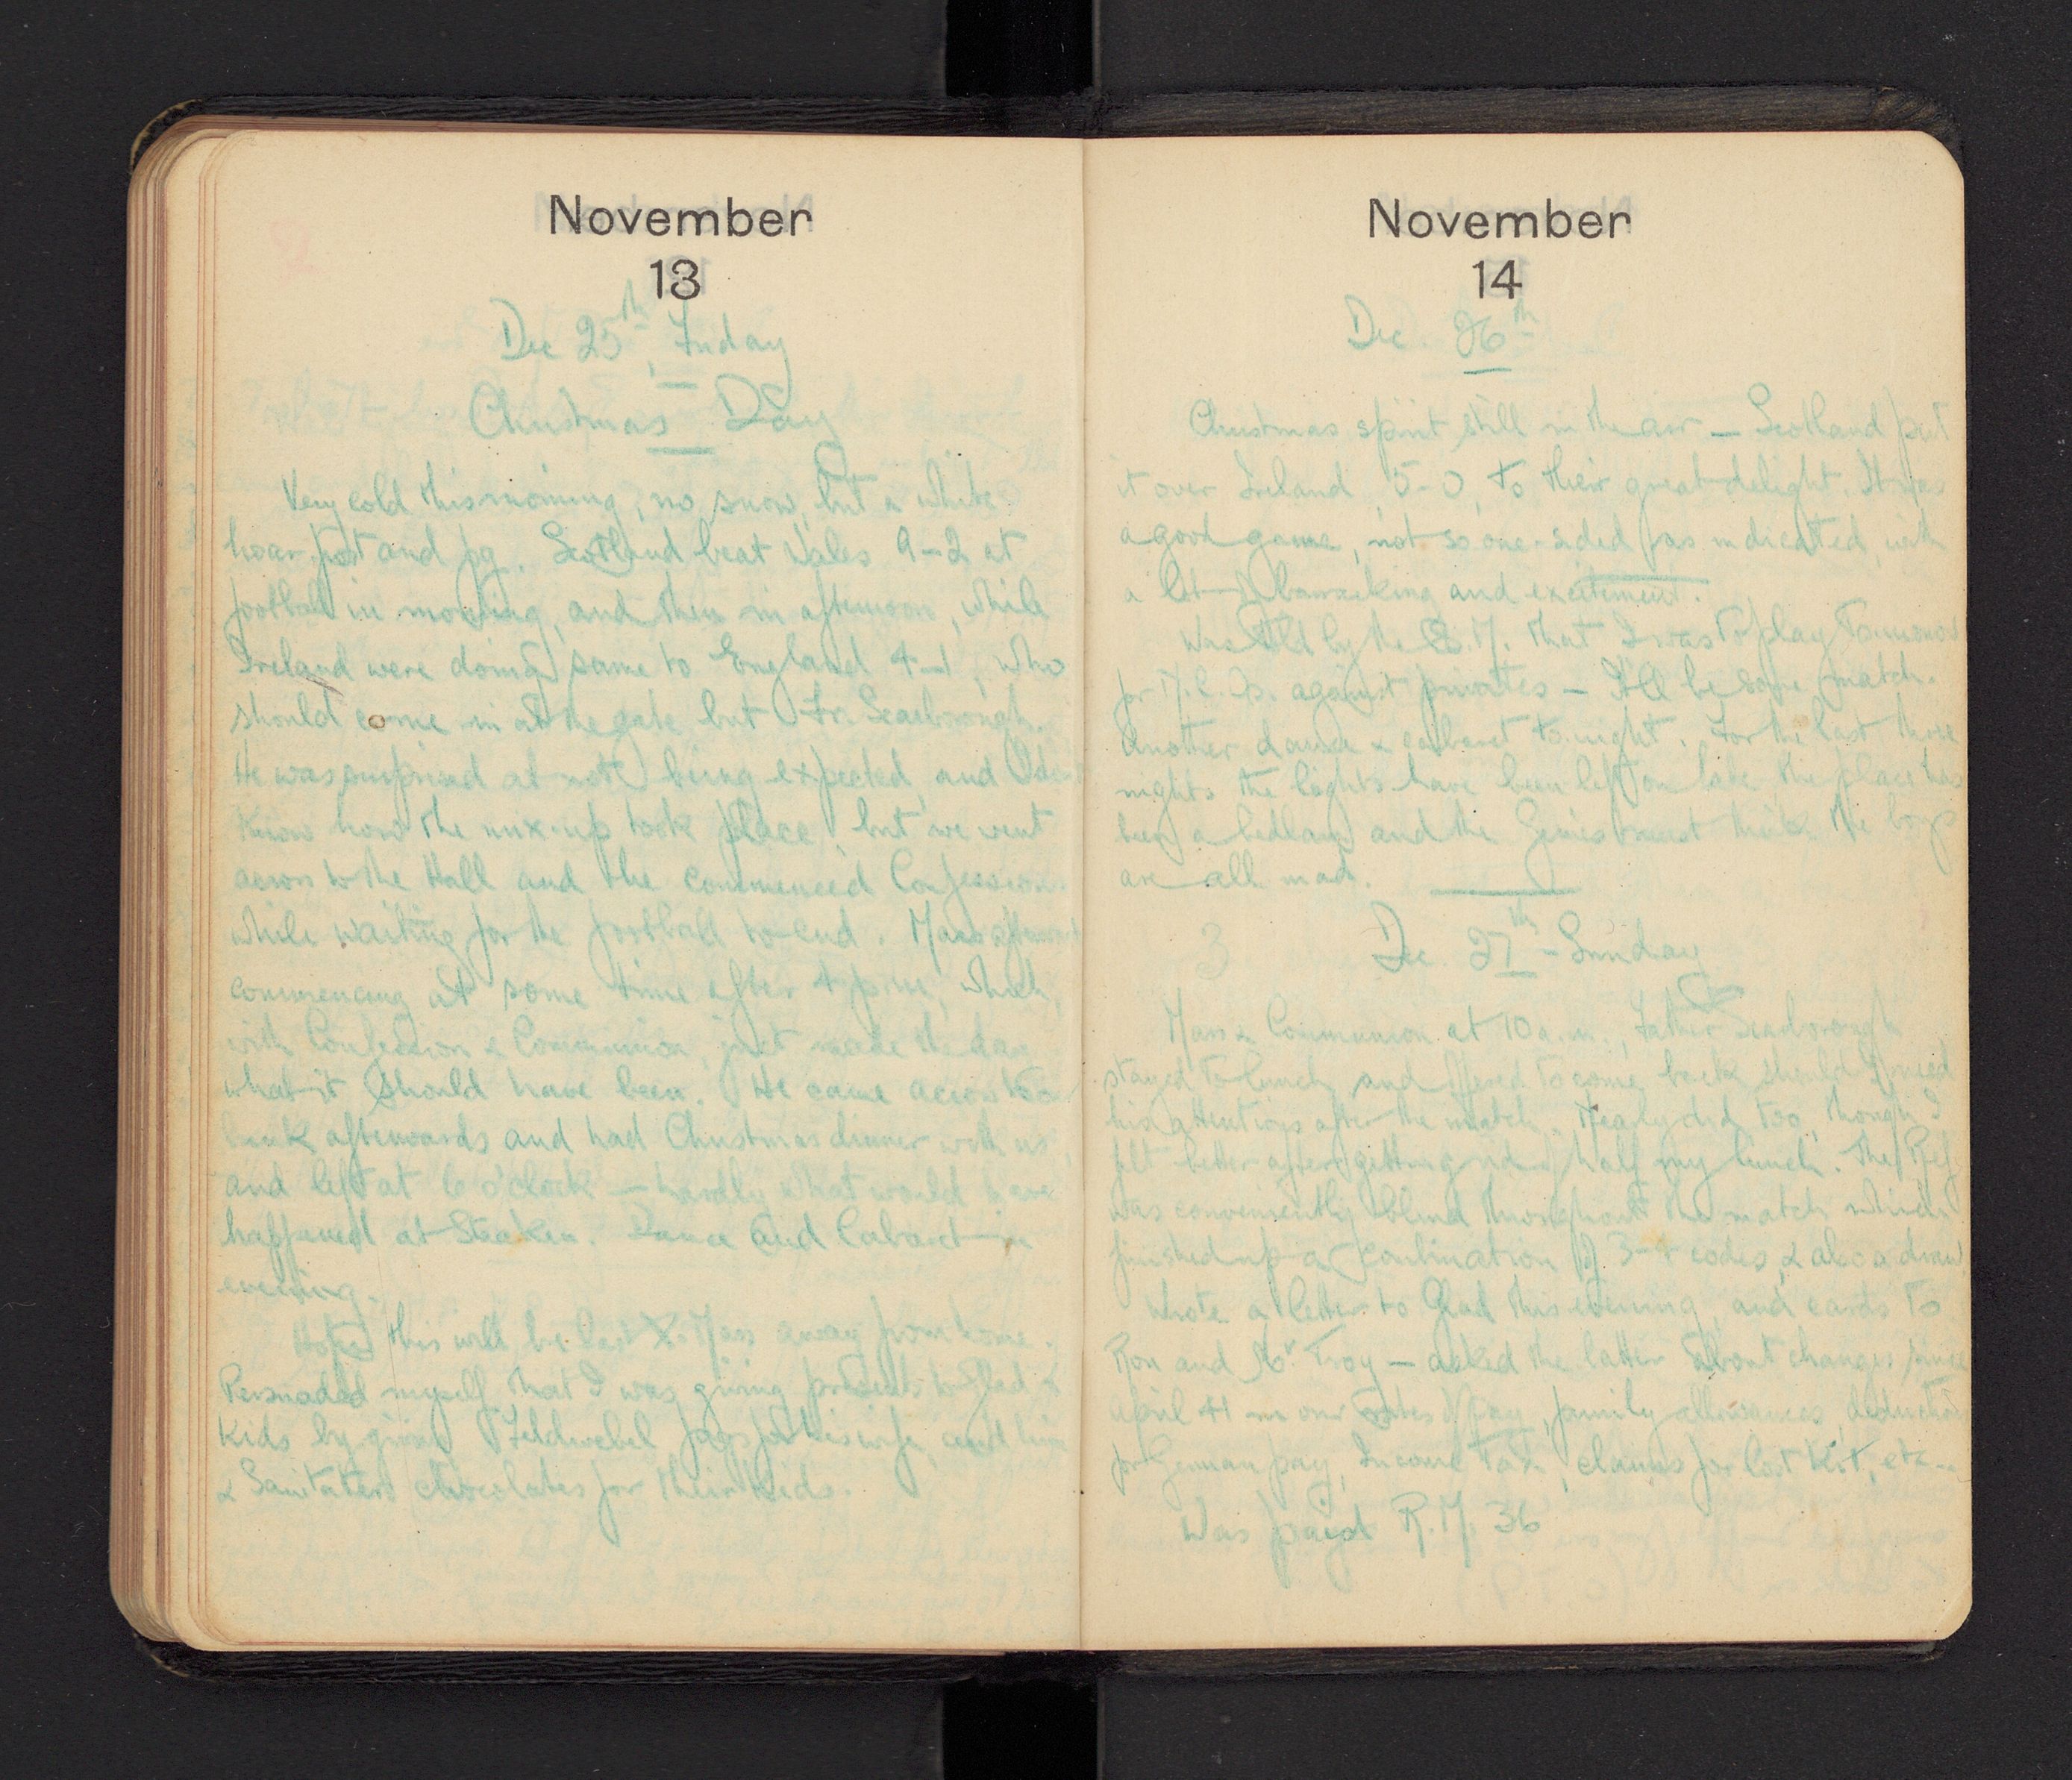 November
13
Dec 25th, Friday
Christmas Day
Very cold this morning, no snow, but a white
hoar frost and fog. Scotland beat Wales 9-2 at
football in morning, and then in afternoon, while
Ireland were doing same to England 4-1, who
should come in at the gate but Fr. Scarborough.
He was surprised at not being expected, and I don't
know how the mix-up took place, but we went
across to the Hall and the commenced Confessions
while waiting for the football to end. Mass afterwards
commencing at some time after 4 p.m., which,
with Confession & Communion, just made the day
what it should have been. He came across to our
bunk afterwards and had Christmas dinner with us,
and left at 6 o'clock — hardly what would have
happened at Staaken. Dance and Cabaret in
evening.
Hope this will be last X-Mass away from home.
Persuaded myself that I was giving presents to Glad &
Kids by giving Feldwebel fags for his wife, and him
& Sanitater chocolates for their kids.
November
14
Dec. 26th
Christmas spirit still in the air — Scotland put
it over Ireland, 5-0, to their great delight. It was
a good game, not so one-sided as indicated, with
a lot of barracking and excitement.
Was told by the S.M. that I was to play tomorrow
for N.C.Os. against privates — It'll be some match.
Another dance & cabaret to-night. For the last three
nights the lights have been left on late, the place has
been a bedlam and the Gerries must think the boys
are all mad.
3
Dec. 27th - Sunday
Mass & Communion at 10 a.m., Father Scarborough
stayed to lunch and offered to come back should I need
his attentions after the match. Nearly did too, though I
felt better after getting rid of half my lunch. The Ref
was conveniently blind throughout the match which
finished up a combination of 3-4 codes, & also a draw.
Wrote a letter to Glad this evening, and cards to
Ron and Mr Troy — asked the latter about changes since
April 41 in our rates of pay, family allowances, deductions
for German pay, Income Tax, claims for lost kit, etc —
Was paid R.M. 36